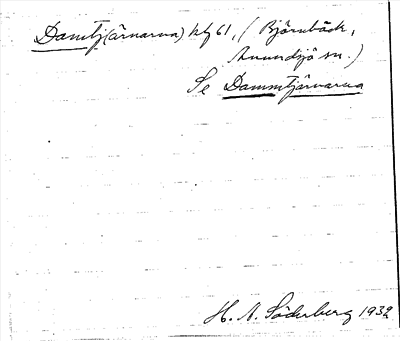 Damtj(ärnarna) hfg 61, (Björnbäck,
Anundsjö sn.)
Se Dammtjärnarna
H. A. Söderberg 1932